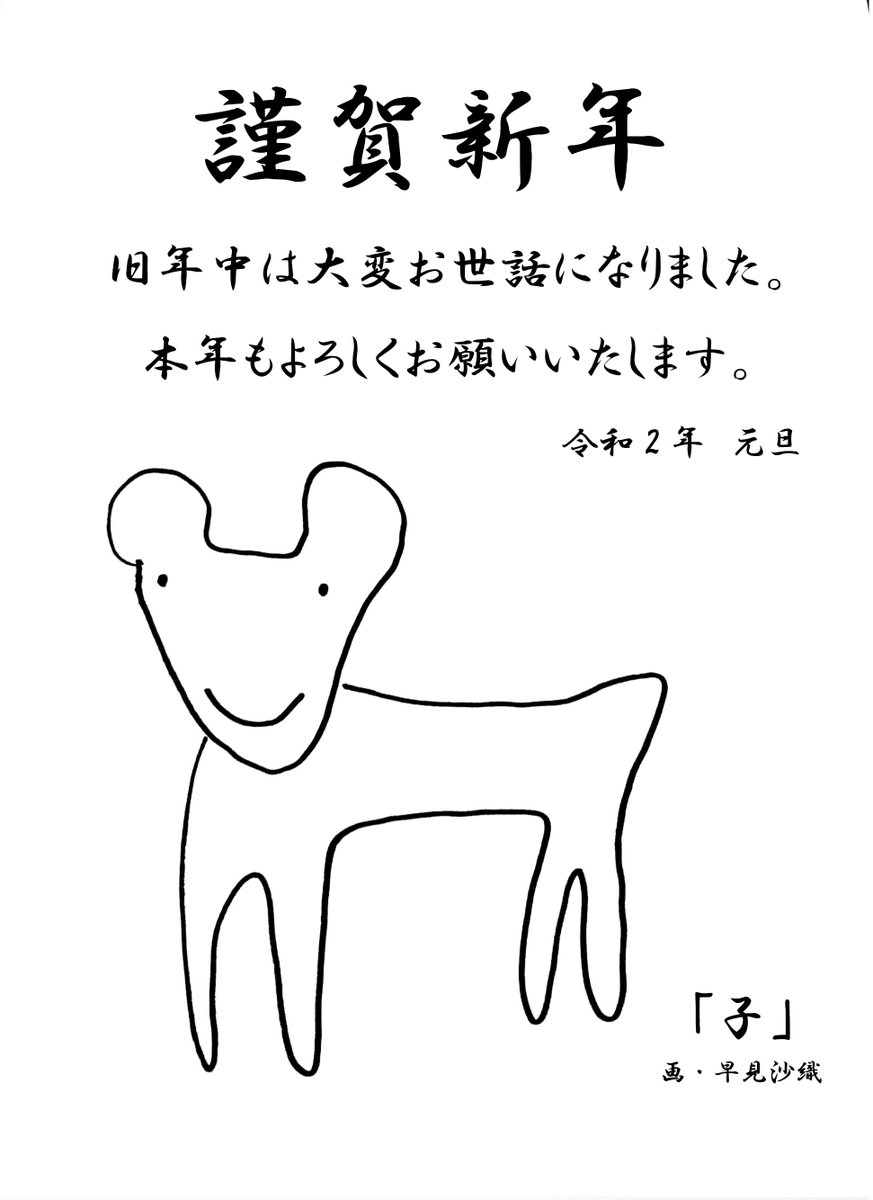 謹賀新年
旧年中は大変お世話になりました。
本年もよろしくお願いいたします。
令和2年 元旦
「子」
画・早見沙織